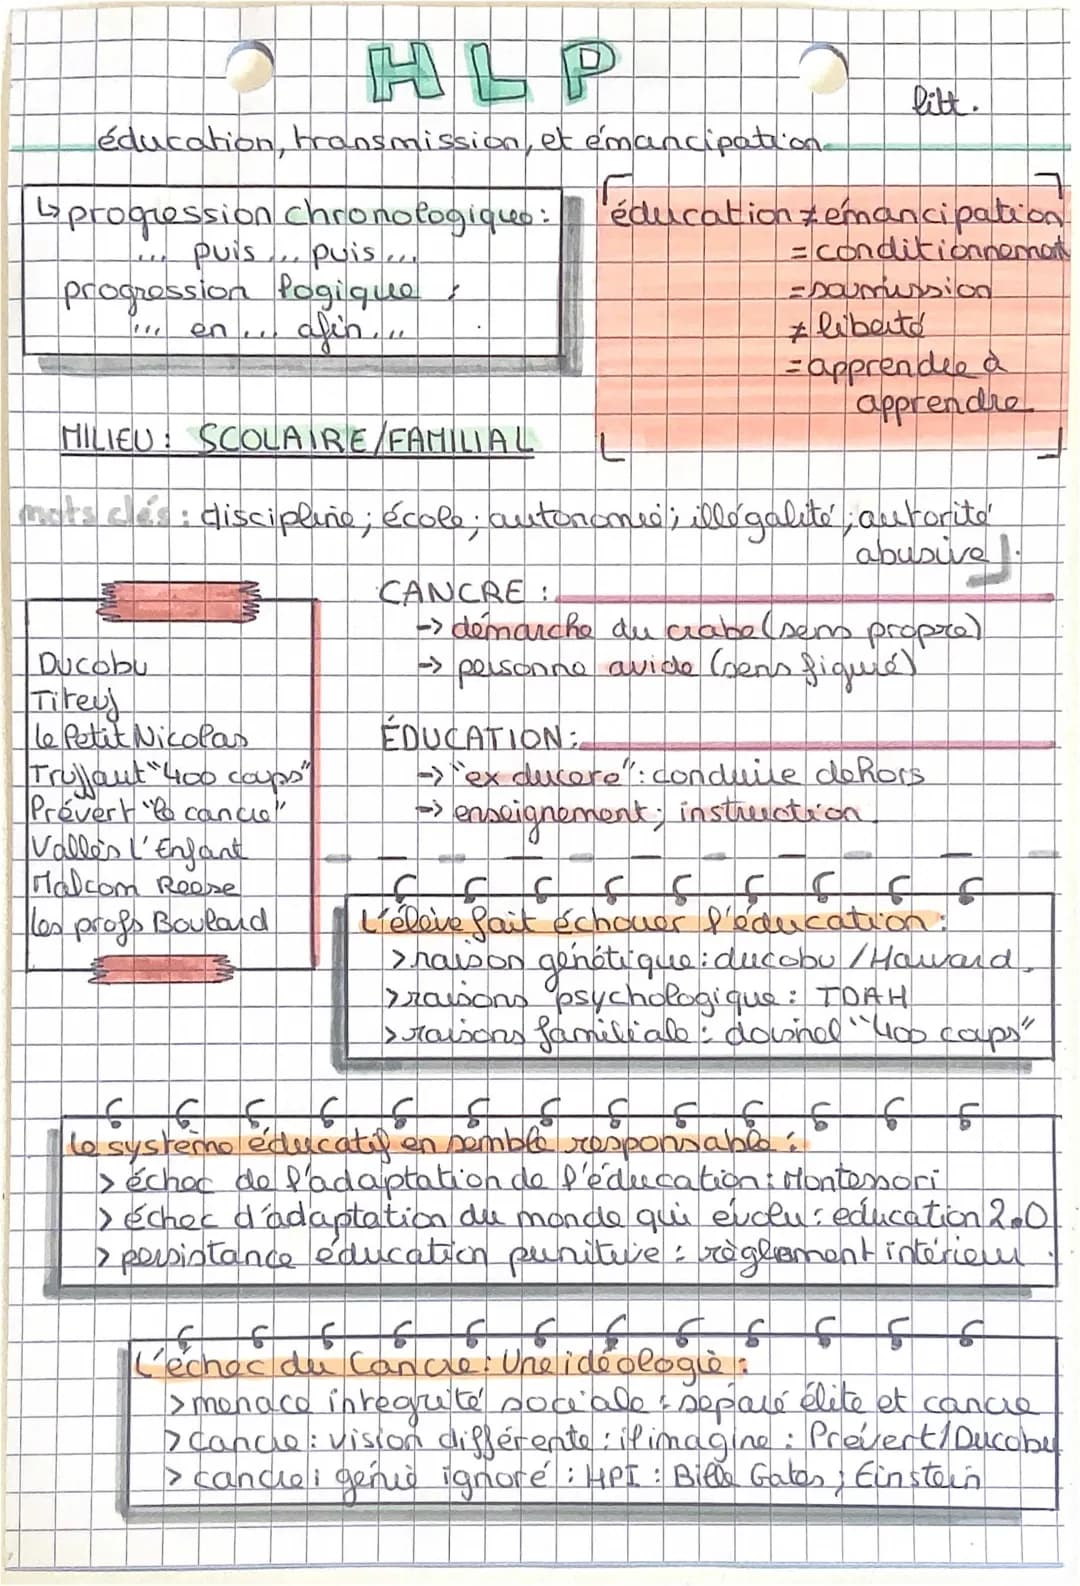 HLP
litt.
éducation, transmission, et émancipation.
↳ progression chronologique :
... puis ... puis ...
progression logique :
... en ... afin ...
éducation ≠ émancipation
= conditionnement
= soumission
≠ liberté
= apprendre à
apprendre
MILIEU : SCOLAIRE/FAMILIAL
mots clés : discipline ; école ; autonomie ; illégalité ; autorité
abusive
CANCRE :
-> démarche du crabe (sens propre)
-> personne avide (sens figuré)
Ducobu
Titeuf
le Petit Nicolas
Truffaut "400 coups"
Prévert "le cancre"
Vallès l'Enfant
Malcom Reese
les profs Boulard
ÉDUCATION :
-> "ex ducere" : conduire dehors
-> enseignement ; instruction
L'élève fait échouer l'éducation :
> raison génétique : ducobu / Haward
> raisons psychologique : TDAH
> raisons familiale : doisnel "400 coups"
le système éducatif en semble responsable :
> échec de l'adaptation de l'éducation : Montessori
> échec d'adaptation du monde qui évolu : éducation 2.0
> persistance éducation punitive : règlement intérieur.
L'échec du Cancre : Une idéologie :
> menace intégrité sociale : séparé élite et cancre
> cancre : vision différente : il imagine : Prévert/Ducobu
> cancre : génie ignoré : HPI : Bille Gates ; Einstein